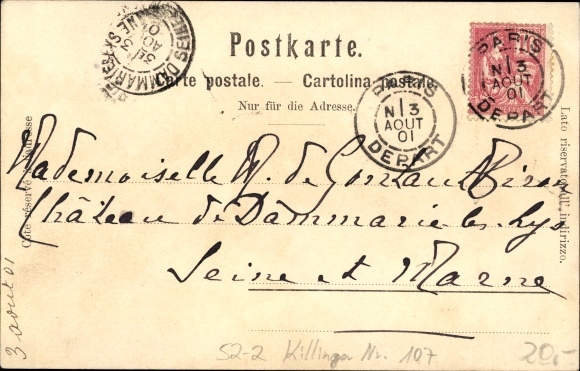 Postkarte.
Carte postale. — Cartolina postale.
Nur für die Adresse.
Côté réservé à l'adresse
Lato riservato all' indirizzo.
PARIS
N 3
AOUT
01
DEPART
PARIS
N 3
AOUT
01
DEPART
3
AOUT
01
Mademoiselle M. de Gontaut Biron
Château de Dammarie les Lys
Seine et Marne
3 aout 01
52-2 Killinger Nr. 107
20,-